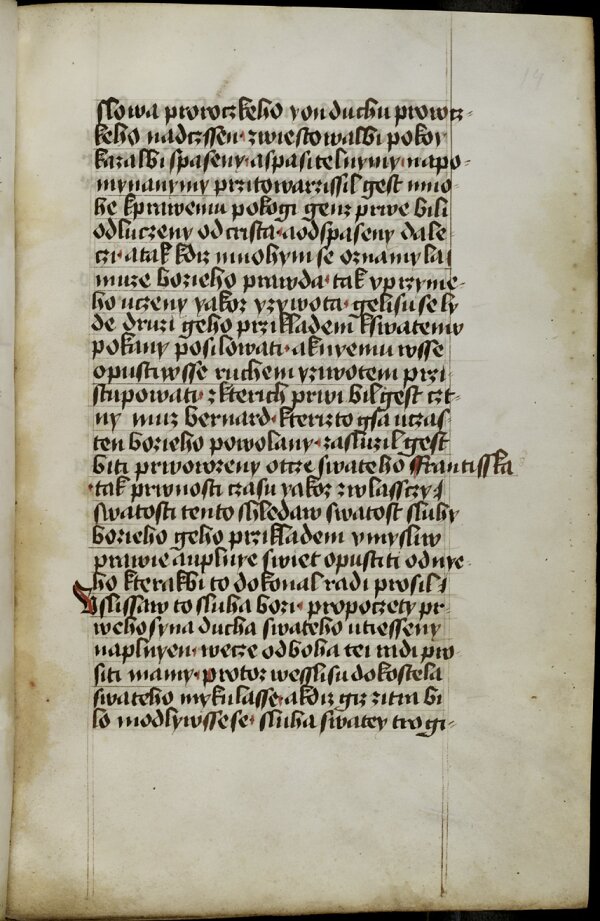 slowa proroczkeho yon duchu prorocz-
keho nadczssen· zwiestowalbi pokoy
kazalbi spaseny· aspasitelnymy· napo-
mynanymy przitowarzissil gest mno-
he kprawemu pokogi genz prwe bili
odluczeny od crista· aodspaseny dale-
czi· atak kdiz mnohym se oznamyla
muze bozieho prawda· tak vprzyme-
ho uczeny yakoz yzywota· gelisu se ly-
de druzi geho przikladem kswatemu
pokany posilowati· aknyemu wsse
opustiwsse ruchem yziwotem przi-
stupowati· zkterich prwi bil gest czt-
ny muz bernard· kterizto gsa uczas-
ten bozieho powolany· zasluzil gest
biti prworozeny otcze swateho Frantisska
·tak prwnosti czasu yakoz zwlassczy
swatosti tento shledaw swatost sluhy
bozieho geho przikladem vmysliw
prawie auplnye swiet opustiti odnye-
ho kterakbi to dokonal radi prosil
Uslissaw to sluha bozi· propoczety pr-
weho syna ducha swateho utiesseny
naplnyen· wecze od boha tei radi pro-
siti mamy· protoz wesslisu dokostela
swateho mykulasse· akdiz giz zitra bi-
lo modlywsse se· sluha swatey trogi-